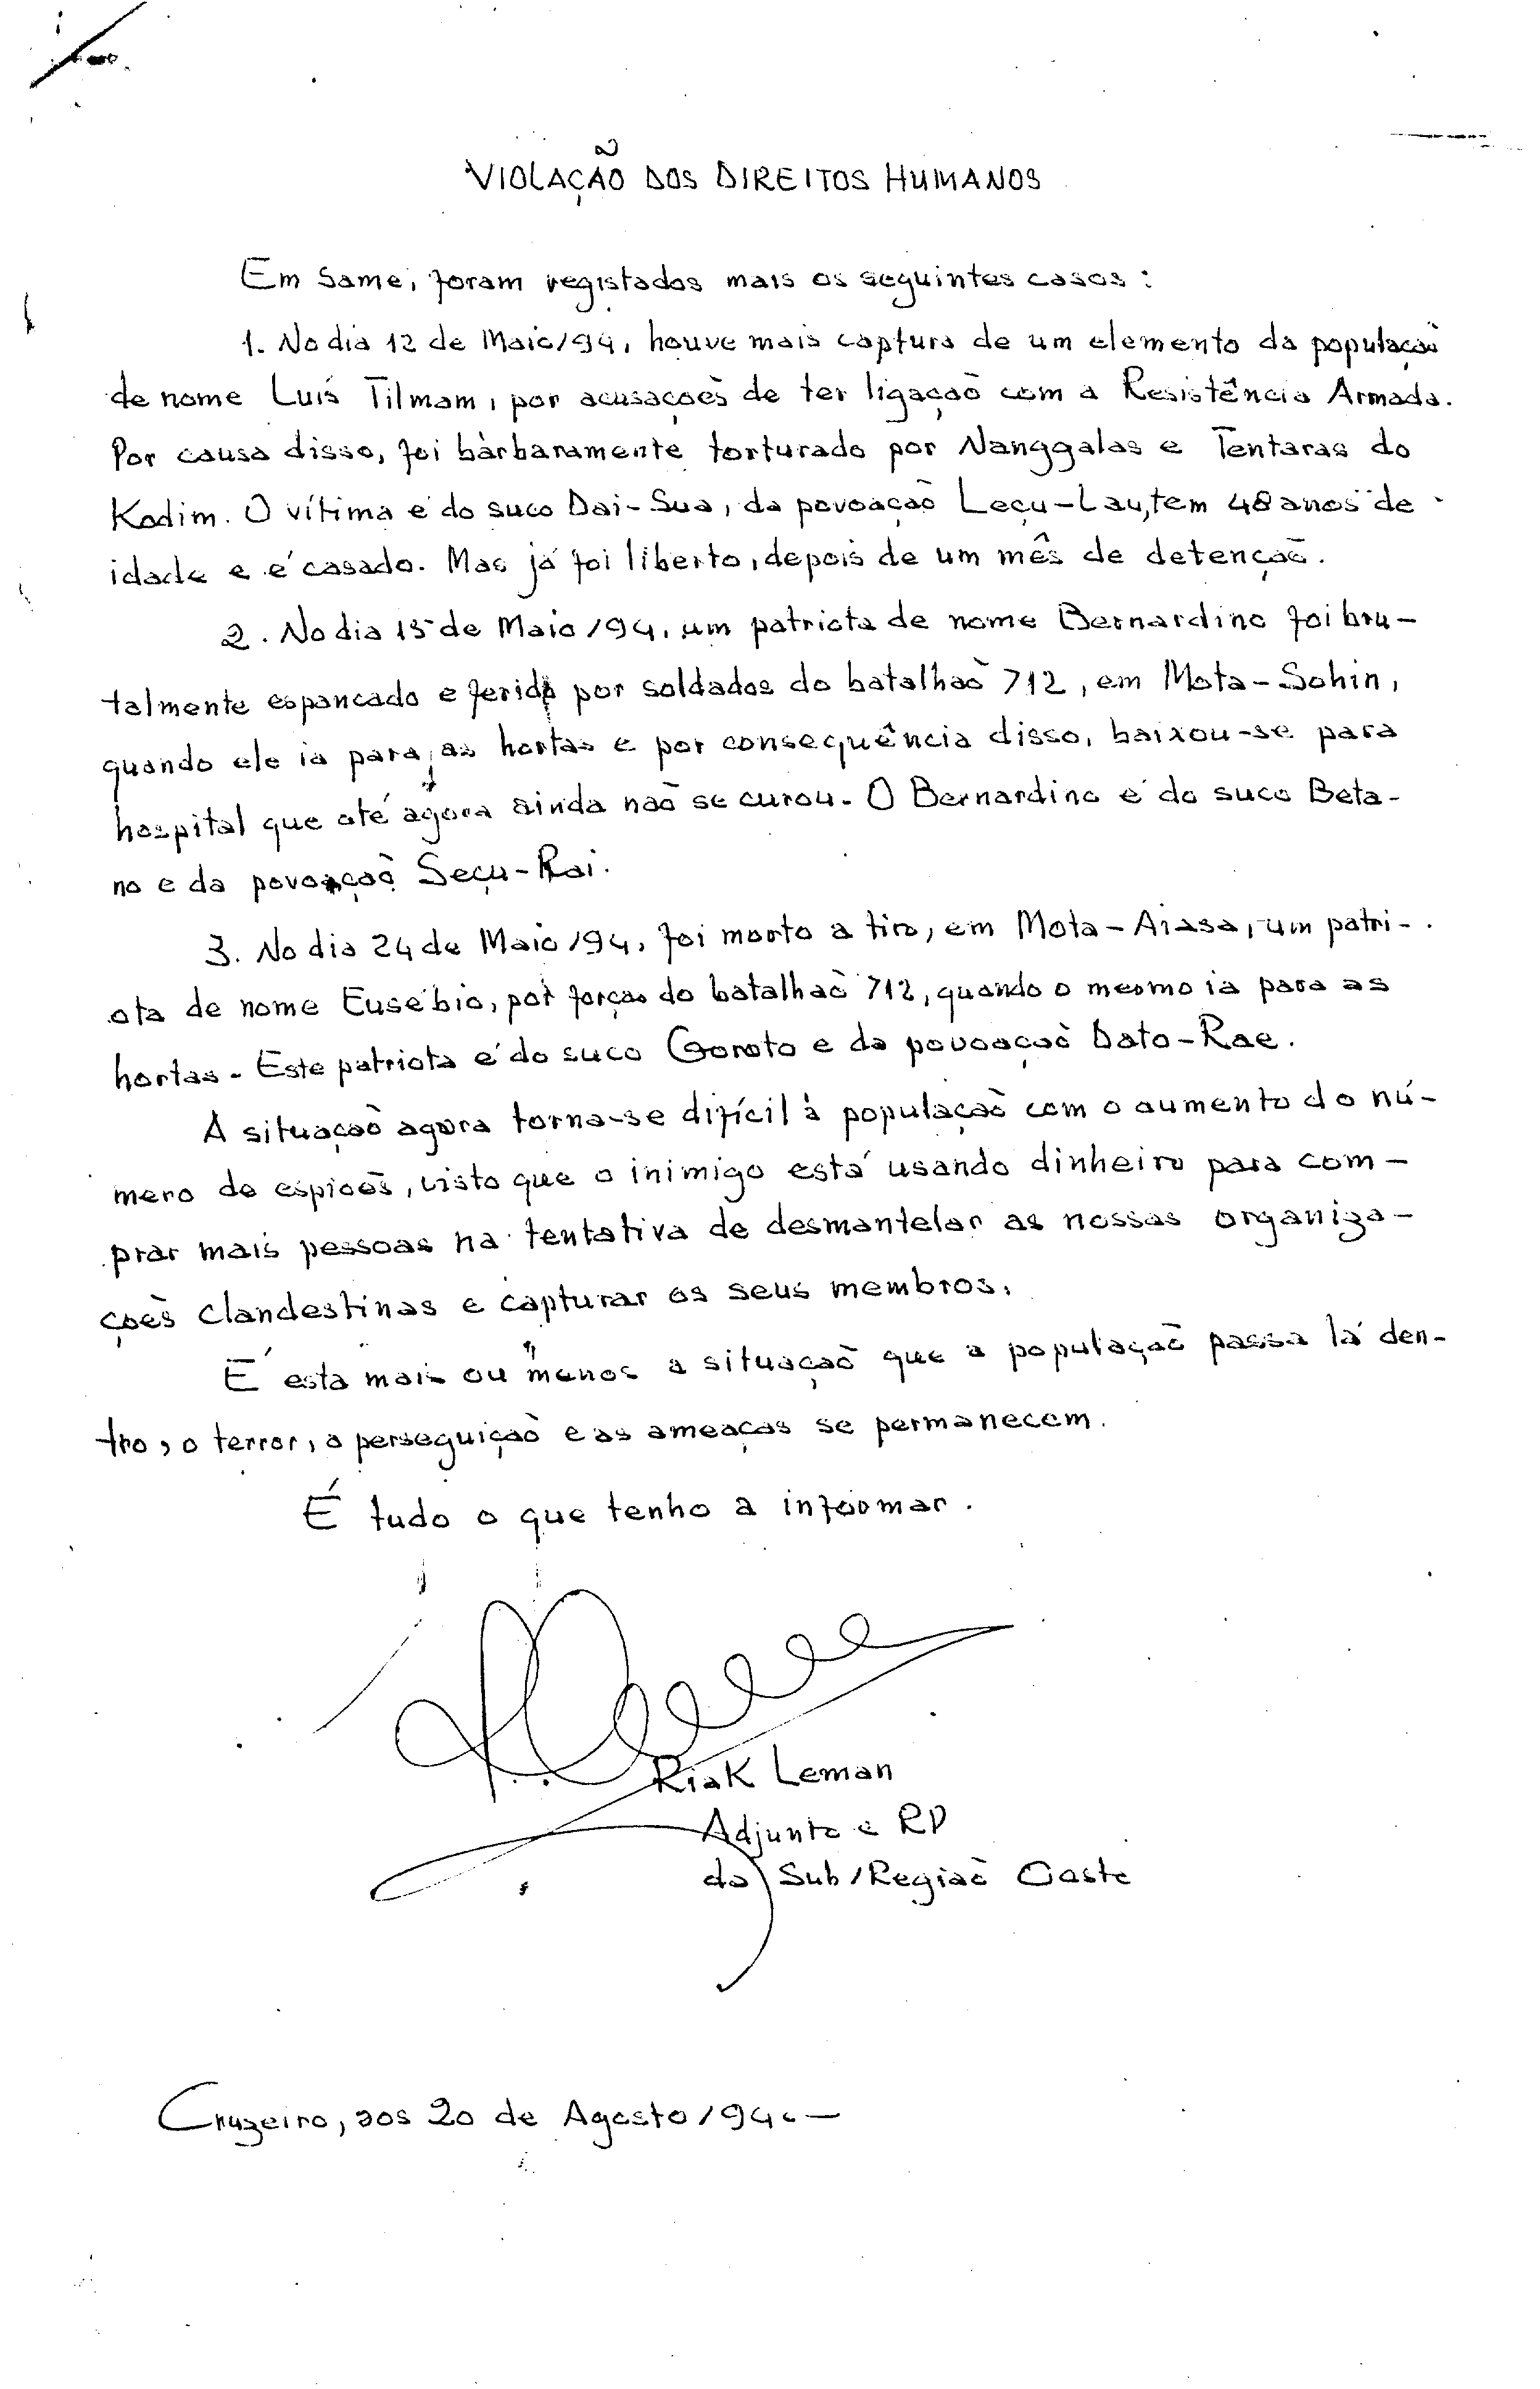 VIOLAÇÃO DOS DIREITOS HUMANOS
Em Same, foram registados mais os seguintes casos:
1. No dia 12 de Maio/94, houve mais captura de um elemento da população
de nome Luís Tilmam, por acusações de ter ligação com a Resistência Armada.
Por causa disso, foi bàrbaramente torturado por Nanggalas e Tentaras do
Kodim. O vítima é do suco Dai-Sua, da povoação Leçu-Lau, tem 48 anos de
idade e é casado. Mas já foi liberto, depois de um mês de detenção.
2. No dia 15 de Maio/94, um patriota de nome Bernardino foi bru-
talmente espancado e ferido por soldados do batalhão 712, em Mota-Sohin,
quando ele ia para as hortas e por consequência disso, baixou-se para
hospital que até agora ainda não se curou. O Bernardino é do suco Beta-
no e da povoação Seçu-Rai.
3. No dia 24 de Maio/94, foi morto a tiro, em Mota-Aiasa, um patri-
ota de nome Eusébio, por forças do batalhão 712, quando o mesmo ia para as
hortas. Este patriota é do suco Gomoto e da povoação Dato-Rae.
A situação agora torna-se difícil à população com o aumento do nú-
mero de espiões, visto que o inimigo está usando dinheiro para com-
prar mais pessoas na tentativa de desmantelar as nossas organiza-
ções clandestinas e capturar os seus membros.
É esta mais ou menos a situação que a população passa lá den-
tro, o terror, a perseguição e as ameaças se permanecem.
É tudo o que tenho a informar.
Riak Leman
Adjunto e RP
da Sub/Região Oeste
Cruzeiro, aos 20 de Agosto/94.-